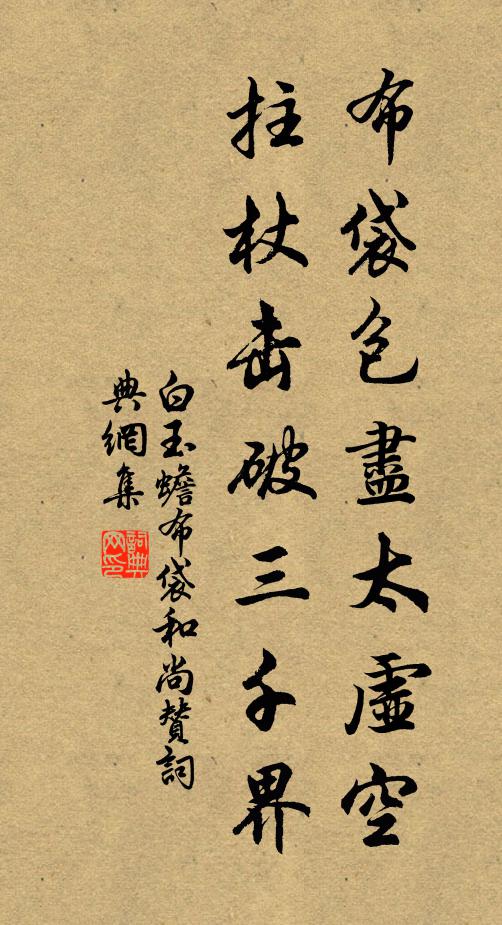 布袋包盡太虛空
拄杖击破三千界
白玉蟾布袋和尚贊詞
典網集
詞典
网印